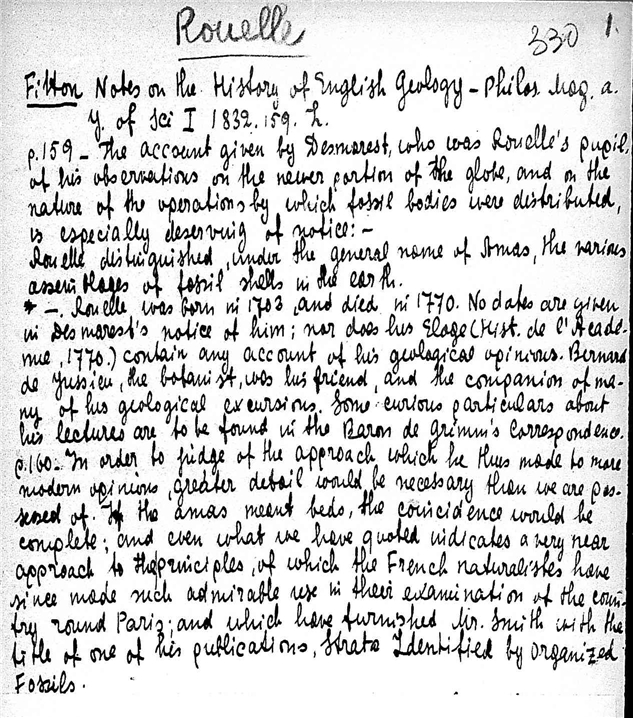 Rouelle
330 1.
Fitton Notes on the History of English Geology - Philos. Mag. a.
y. of Sci I 1832. 159. h.
p.159 - The account given by Desmarest, who was Rouelle's pupil,
of his observations on the newer portion of the globe, and on the
nature of the operations by which fossil bodies were distributed,
is especially deserving of notice: -
Rouelle distinguished, under the general name of Amas, the various
assemblages of fossil shells in the earth.
* -. Rouelle was born in 1703, and died in 1770. No dates are given
in Desmarest's notice of him; nor does his Eloge (Hist. de l'Acadé-
mie, 1770.) contain any account of his geological opinions. Bernard
de Jussieu, the botanist, was his friend, and the companion of ma-
ny of his geological excursions. Some curious particulars about
his lectures are to be found in the Baron de Grimm's Correspondence.
p.160. In order to judge of the approach which he thus made to more
modern opinions, greater detail would be necessary than we are pos-
sesed of. If the amas meant beds, the coincidence would be
complete; and even what we have quoted indicates a very near
approach to the principles, of which the French naturalistes have
since made such admirable use in their examination of the coun-
try round Paris; and which have furnished Mr. Smith with the
title of one of his publications, Strata Identified by Organized
Fossils.